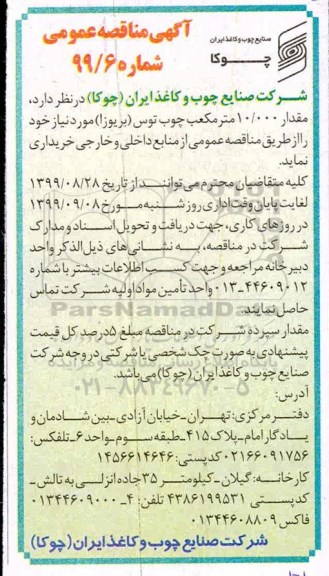 صنایع چوب و کاغذ ایران
چــوکا
آگهی مناقصه عمومی
شماره ۹۹/۶
شرکت صنایع چوب و کاغذ ایران (چوکا) در نظر دارد،
مقدار ۱۰/۰۰۰ متر مکعب چوب توس (بریوزا) مورد نیاز خود
را از طریق مناقصه عمومی از منابع داخلی و خارجی خریداری
نماید.
کلیه متقاضیان محترم می‌توانند از تاریخ ۱۳۹۹/۰۸/۲۸
لغایت پایان وقت اداری روز شنبه مورخ ۱۳۹۹/۰۹/۰۸
در روزهای کاری، جهت دریافت و تحویل اسناد و مدارک
شرکت در مناقصه، به نشانی‌های ذیل‌الذکر واحد
دبیرخانه مراجعه و جهت کسب اطلاعات بیشتر با شماره
۰۱۳-۴۴۶۰۹۰۱۲ واحد تأمین مواد اولیه شرکت تماس
حاصل نمایند.
مقدار سپرده شرکت در مناقصه مبلغ ۵درصد کل قیمت
پیشنهادی به صورت چک شخصی یا شرکتی در وجه شرکت
صنایع چوب و کاغذ ایران (چوکا) می‌باشد.
آدرس:
دفتر مرکزی: تهران-خیابان آزادی-بین شادمان و
یادگار امام-پلاک ۴۱۵-طبقه سوم-واحد ۶-تلفکس:
۰۲۱۶۶۰۹۱۷۵۶ کدپستی: ۱۴۵۶۶۱۴۶۴۶
کارخانه: گیلان-کیلومتر ۳۵جاده انزلی به تالش-
کدپستی ۴۳۸۶۱۹۹۵۳۱ تلفن: ۴-۰۱۳۴۴۶۰۹۰۰۰
فاکس ۰۱۳۴۴۶۰۸۸۰۹
شرکت صنایع چوب و کاغذ ایران (چوکا)
ParsNamadData
۰۲۱-۸۸۳۴۹۶۷۰-۵